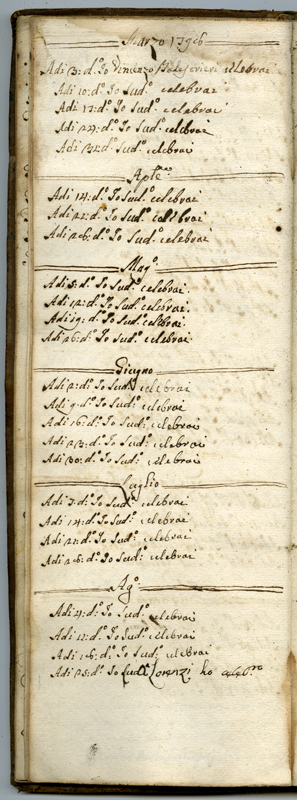 Marzo 1796
Adi 3: d.º Io Vinenzo celebrai
Adi 10: d.º Io Sud.º celebrai
Adi 17: d.º Io Sud.º celebrai
Adi 24: d.º Io Sud.º celebrai
Adi 31: d.º Sud.º celebrai
Aple
Adi 14: d.º Io Sud.º celebrai
Adi 21: d.º Io Sud.º celebrai
Adi 26: d.º Io Sud.º celebrai
Mag.º
Adi 5: d.º Io Sud.º celebrai
Adi 12: d.º Io Sud.º celebrai
Adi 19: d.º Io Sud.º celebrai
Adi 26: d.º Io Sud.º celebrai
Giugno
Adi 2: d.º Io Sud.º celebrai
Adi 9: d.º Io Sud.º celebrai
Adi 16: d.º Io Sud.º celebrai
Adi 23: d.º Io Sud.º celebrai
Adi 30: d.º Io Sud.º celebrai
Luglio
Adi 7: d.º Io Sud.º celebrai
Adi 14: d.º Io Sud.º celebrai
Adi 21: d.º Io Sud.º celebrai
Adi 28: d.º Io Sud.º celebrai
Ag.º
Adi 4: d.º Io Sud.º celebrai
Adi 11: d.º Io Sud.º celebrai
Adi 18: d.º Io Sud.º celebrai
Adi 25: d.º Io Lorenzi ho